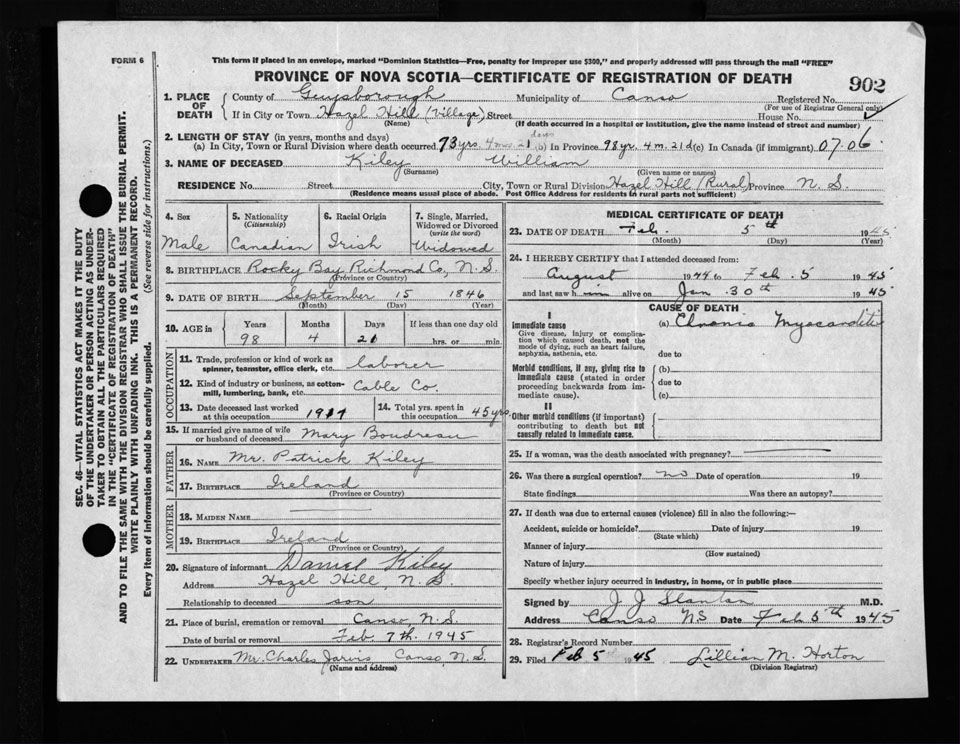 FORM 6
This form if placed in an envelope, marked "Dominion Statistics—Free, penalty for improper use $300," and properly addressed will pass through the mail "FREE"
PROVINCE OF NOVA SCOTIA—CERTIFICATE OF REGISTRATION OF DEATH
902
1. PLACE OF DEATH
County of Guysborough Municipality of Canso Registered No.
(For use of Registrar General only)
If in City or Town Hazel Hill (Village) Street House No.
(Name) (If death occurred in a hospital or institution, give the name instead of street and number)
2. LENGTH OF STAY (in years, months and days)
(a) In City, Town or Rural Division where death occurred 73 yrs. 4 mos. 21 days (b) In Province 98 yr. 4 m. 21 d (c) In Canada (if immigrant) 07.06
3. NAME OF DECEASED Kiley William
(Surname) (Given name or names)
RESIDENCE No. Street City, Town or Rural Division Hazel Hill (Rural) Province N. S.
(Residence means usual place of abode. Post Office Address for residents in rural parts not sufficient)
4. Sex
Male
5. Nationality
(Citizenship)
Canadian
6. Racial Origin
Irish
7. Single, Married, Widowed or Divorced
(write the word)
Widowed
8. BIRTHPLACE Rocky Bay, Richmond Co, N. S.
(Province or Country)
9. DATE OF BIRTH September 15 1846
(Month) (Day) (Year)
10. AGE in
Years Months Days If less than one day old
98 4 21 hrs. or min.
OCCUPATION
11. Trade, profession or kind of work as
spinner, teamster, office clerk, etc. laborer
12. Kind of industry or business, as cotton-
mill, lumbering, bank, etc. Cable Co.
13. Date deceased last worked
at this occupation
14. Total yrs. spent in
this occupation 45 yrs
15. If married give name of wife
or husband of deceased Mary Boudreau
FATHER
16. NAME Mr. Patrick Kiley
17. BIRTHPLACE Ireland
(Province or Country)
MOTHER
18. MAIDEN NAME
19. BIRTHPLACE Ireland
(Province or Country)
20. Signature of informant Daniel Kiley
Address Hazel Hill, N. S.
Relationship to deceased son
21. Place of burial, cremation or removal Canso, N.S.
Date of burial or removal Feb 7th. 1945
22. UNDERTAKER Mr. Charles Jarvis Canso, N. S.
(Name and address)
MEDICAL CERTIFICATE OF DEATH
23. DATE OF DEATH Feb. 5th 1945
(Month) (Day) (Year)
24. I HEREBY CERTIFY that I attended deceased from:
August 1944 to Feb. 5 1945
and last saw h im alive on Jan. 30th 1945
CAUSE OF DEATH
I
Immediate cause
Give disease, injury or complica-
tion which caused death, not the
mode of dying, such as heart failure,
asphyxia, asthenia, etc.
(a) Chronic Myocarditis
due to
Morbid conditions, if any, giving rise to
immediate cause (stated in order
proceeding backwards from im-
mediate cause).
(b)
due to
(c)
II
Other morbid conditions (if important)
contributing to death but not
causally related to immediate cause.
25. If a woman, was the death associated with pregnancy?
26. Was there a surgical operation? no Date of operation 19
State findings Was there an autopsy?
27. If death was due to external causes (violence) fill in also the following:—
Accident, suicide or homicide? Date of injury 19
(State which)
Manner of injury
(How sustained)
Nature of injury
Specify whether injury occurred in industry, in home, or in public place
Signed by J J Stanton M.D.
Address Canso NS Date Feb 5th 1945
28. Registrar's Record Number
29. Filed Feb 5 1945 Lillian M. Horton
(Division Registrar)
SEC. 46—VITAL STATISTICS ACT MAKES IT THE DUTY
OF THE UNDERTAKER OR PERSON ACTING AS UNDER-
TAKER TO OBTAIN ALL THE PARTICULARS REQUIRED
IN THE "CERTIFICATE OF REGISTRATION OF DEATH"
AND TO FILE THE SAME WITH THE DIVISION REGISTRAR WHO SHALL ISSUE THE BURIAL PERMIT.
WRITE PLAINLY WITH UNFADING INK. THIS IS A PERMANENT RECORD.
Every item of information should be carefully supplied. (See reverse side for instructions.)